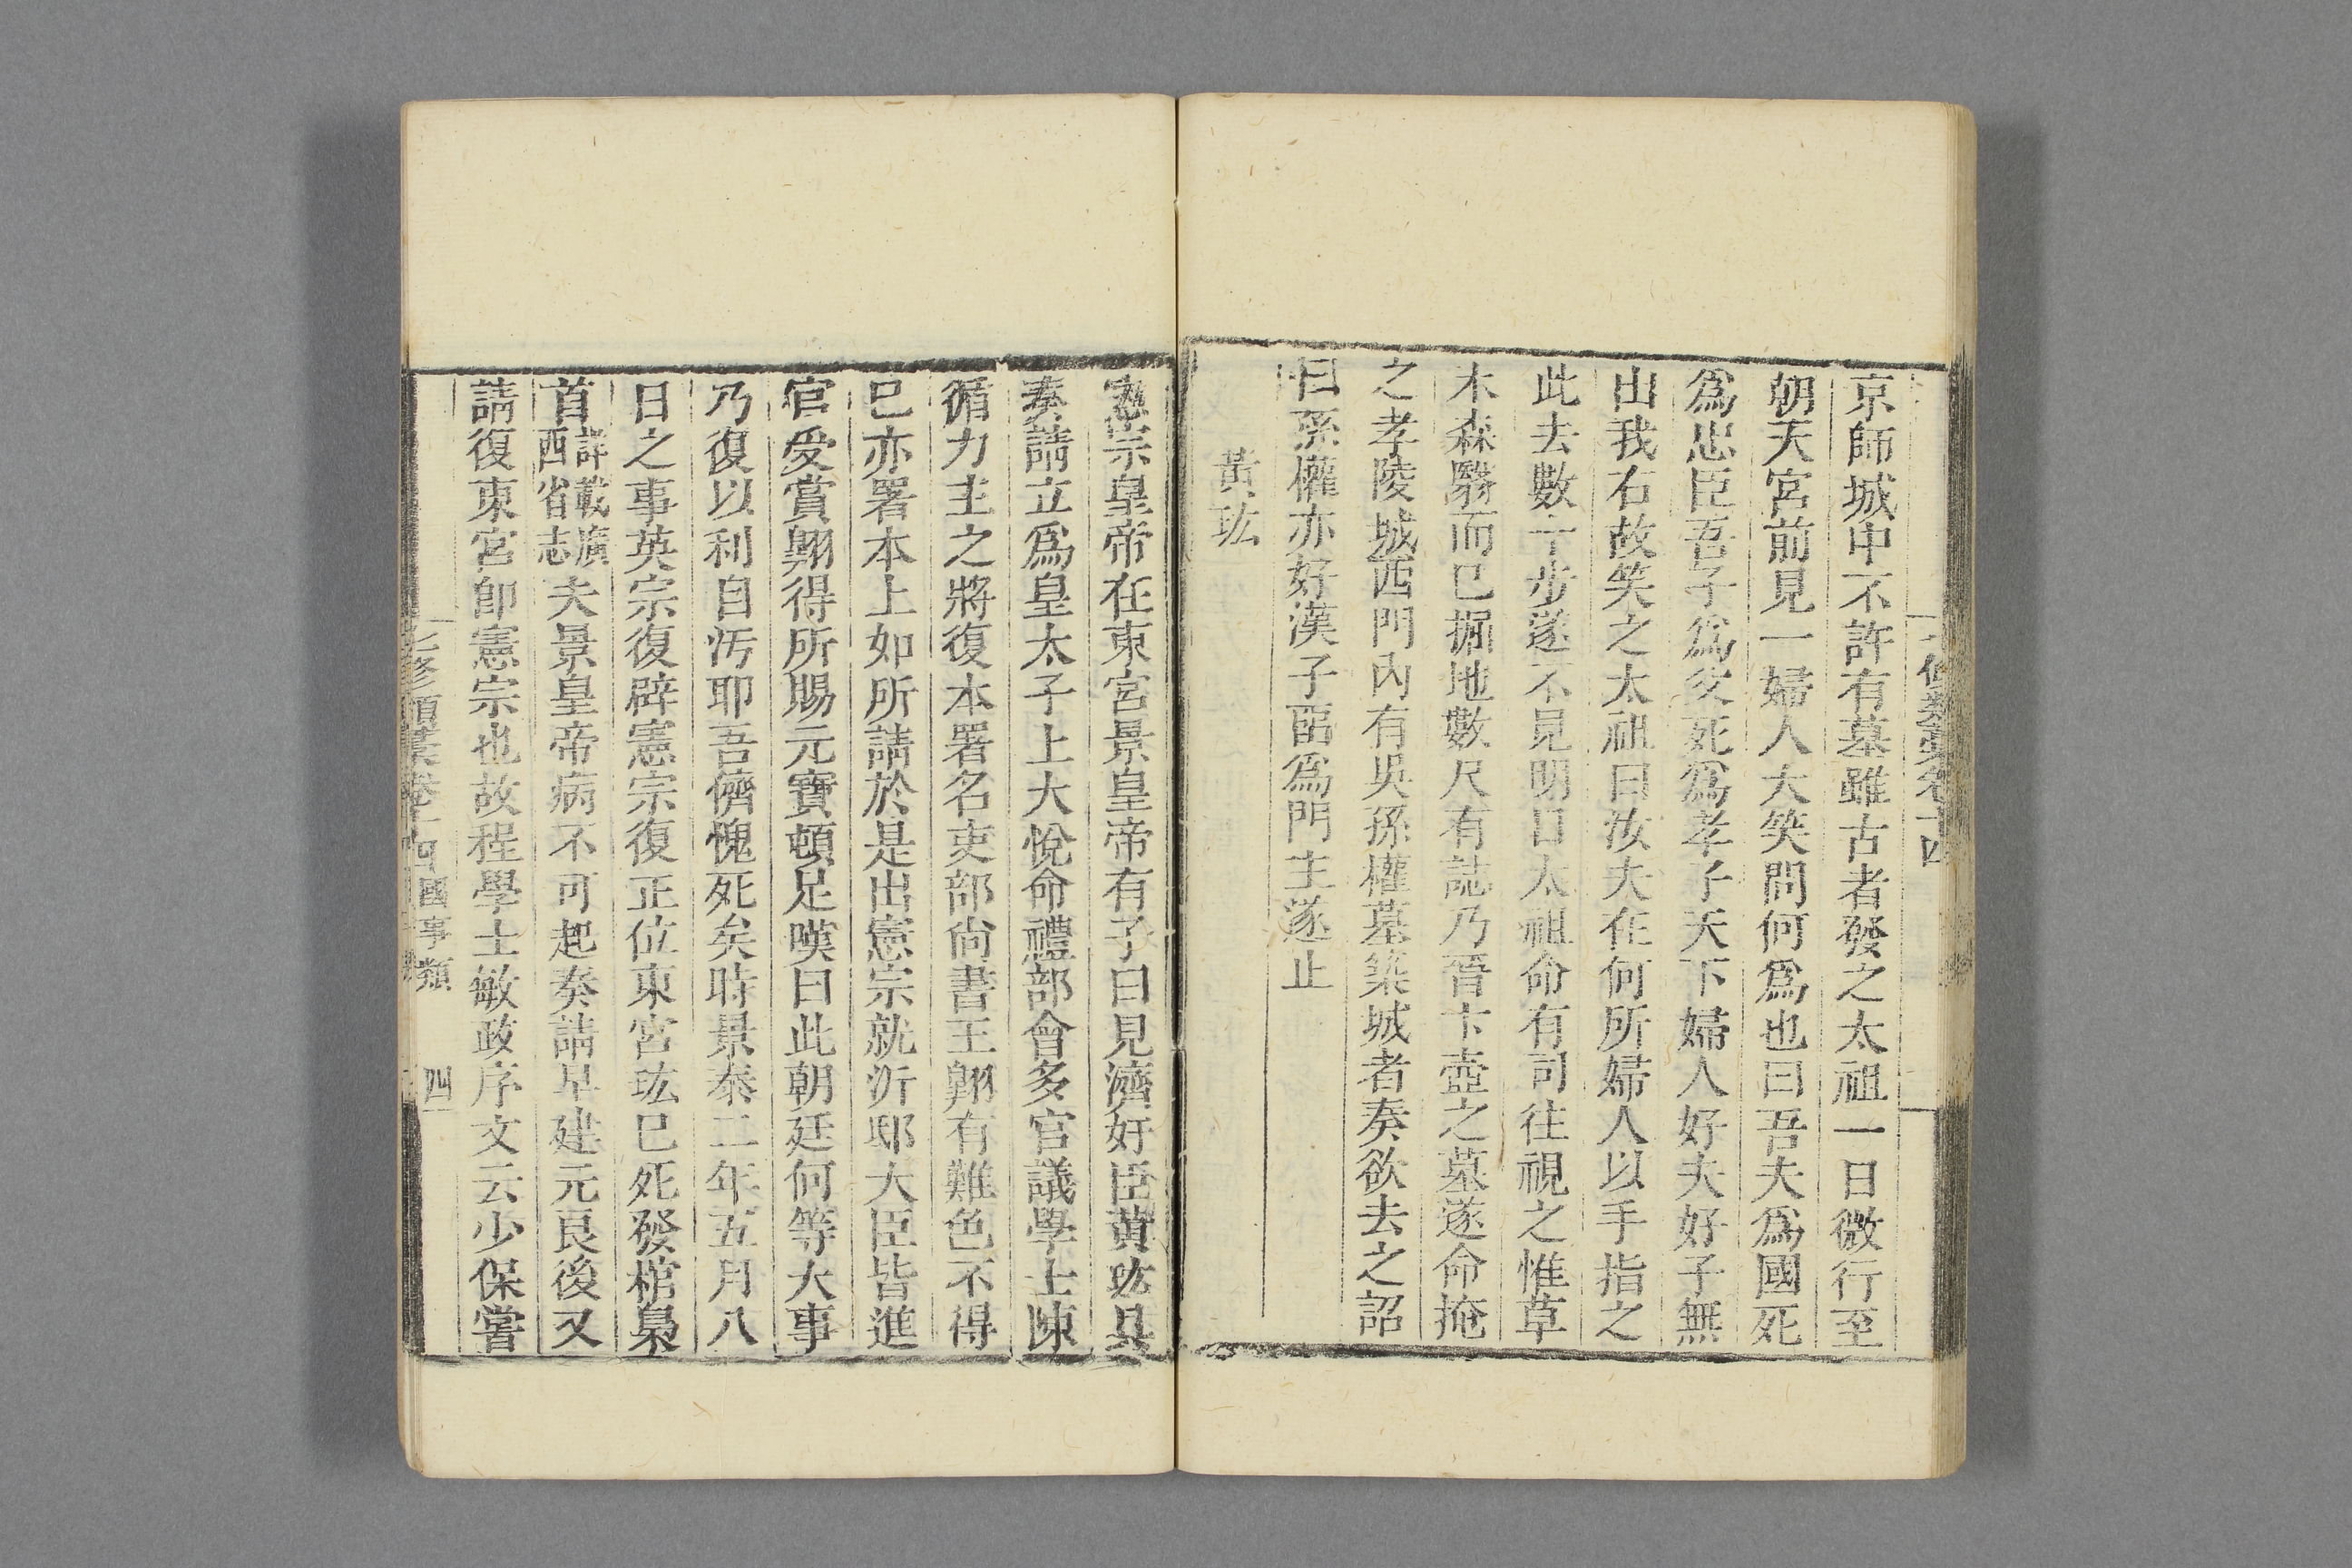 修類藁卷十四
京師城中不許有墓雖古者發之太祖一日微行至
朝天宮前見一婦人大笑問何爲也曰吾夫爲國死
爲忠臣吾子爲父死爲孝子天下婦人好夫好子無
出我右故笑之太祖曰汝夫在何所婦人以手指之
此去數十步遂不見明日太祖命有司往視之惟草
木森翳而已掘地數尺有誌乃晉卞壺之墓遂命掩
之孝陵城西門內有吳孫權墓築城者奏欲去之詔
曰孫權亦好漢子畱爲門主遂止
黃㺬
憲宗皇帝在東宮景皇帝有子曰見濟奸臣黃㺬具
奏請立爲皇太子上大悅命禮部會多官議學士陳
循力主之將復本署名吏部尚書王翺有難色不得
已亦署本上如所請於是出憲宗就沂邸大臣皆進
官受賞翺得所賜元寶頓足嘆曰此朝廷何等大事
乃復以利自汚耶吾儕愧死矣時景泰二年五月八
日之事英宗復辟憲宗復正位東宮㺬已死發棺梟
首詳載廣西省志夫景皇帝病不可起奏請早建元良後又
請復東宮卽憲宗也故程學士敏政序文云少保嘗
七修類藁卷十四國事類 四